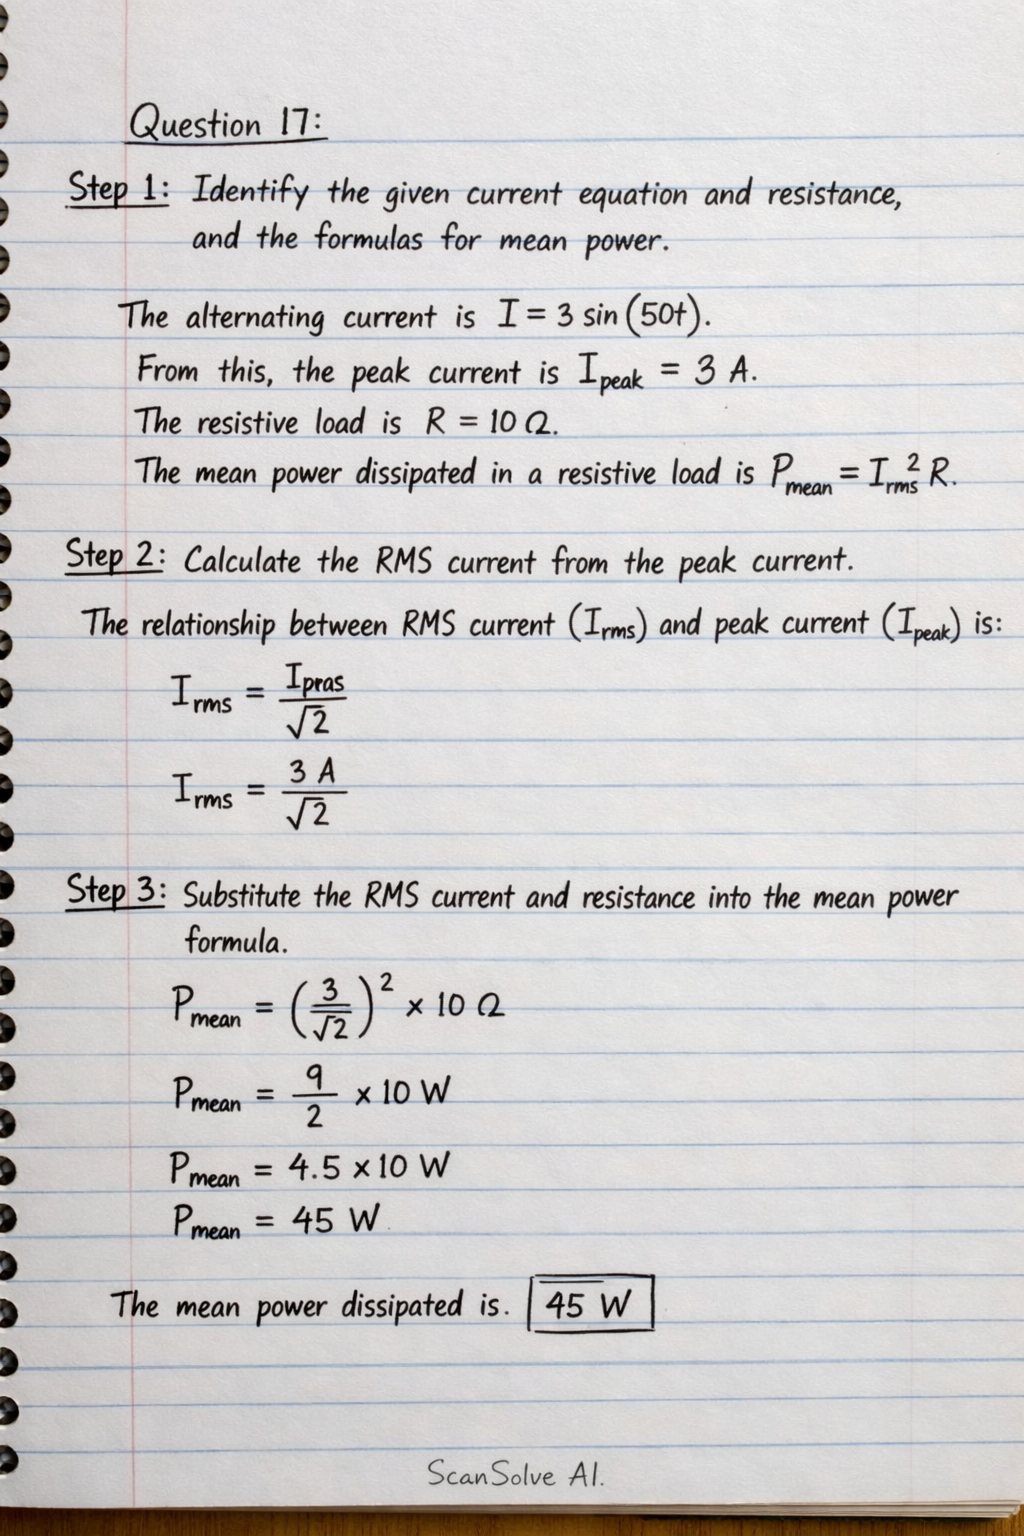 Question 17:
Step 1: Identify the given current equation and resistance,
and the formulas for mean power.
The alternating current is I = 3 sin (50t).
From this, the peak current is I_peak = 3 A.
The resistive load is R = 10 Ω.
The mean power dissipated in a resistive load is P_mean = I_rms² R.
Step 2: Calculate the RMS current from the peak current.
The relationship between RMS current (I_rms) and peak current (I_peak) is:
I_rms = I_pras / √2
I_rms = 3 A / √2
Step 3: Substitute the RMS current and resistance into the mean power
formula.
P_mean = (3 / √2)² × 10 Ω
P_mean = 9 / 2 × 10 W
P_mean = 4.5 × 10 W
P_mean = 45 W
The mean power dissipated is. 45 W
ScanSolve AI.